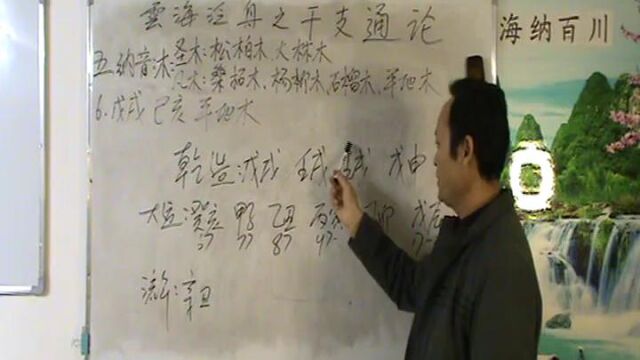 雲海泛舟之干支通论
海纳百川
五.纳音木圣木:松柏木,大林木
凡木:桑柘木,杨柳木,石榴木,平地木
6.戊戌 己亥 平地木
乾造:戊戌 壬戌 戌 戊申
大运:癸亥 甲子 乙丑 丙寅 卯 戊辰
27 37 47
流年:辛丑